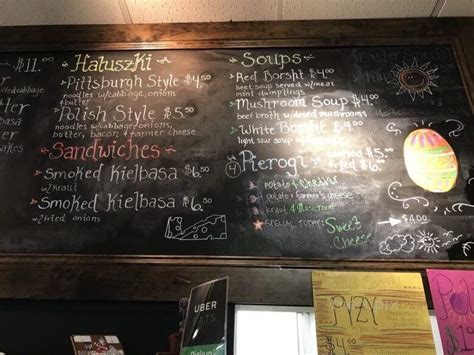 $11.00
Haluszki
Pittsburgh Style $4.50
noodles w/cabbage, onions
+ butter
Polish Style $5.50
noodles w/cabbage, onions
butter, bacon + farmer cheese
Sandwiches
Smoked Kielbasa $6.50
w/kraut
Smoked Kielbasa $6.50
w/fried onions
Soups
Red Borsht $4.00
beet soup served w/meat
mini dumplings
Mushroom Soup $4.
beef broth w/dried mushrooms
White Borsht $4.00
light sour soup w/
4 Pierogi $5.00
$6.50
potato + cheddar
potato + farmer's cheese
kraut + Mushroom
SPECIAL TODAY: Sweet
Cheese
$4.00
UBER
EATS
PYZY
$4.00